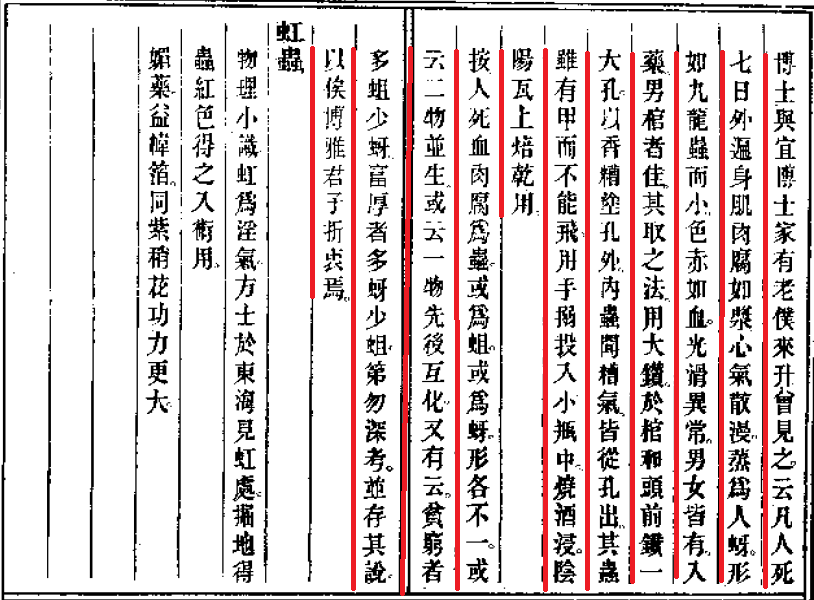 博士與宜博士家有老僕來升曾見之。云凡人死
七日外遍身肌肉腐如漿心氣散漫。蒸為人蚜。形
如九龍蟲而小。色赤如血。光滑異常。男女皆有。入
藥男棺者佳。其取之法。用大鑽於棺和頭前鑽一
大孔。以香糟塗孔外。內蟲聞糟氣。皆從孔出。其蟲
雖有甲而不能飛。用手搦投入小瓶中。燒酒浸。陰
陽瓦上焙乾用。
按人死血肉腐為蟲。或為蛆。或為蚜。形各不一。或
云二物並生。或云一物先後互化。又有云。貧窮者
多蛆少蚜。富厚者多蚜少蛆。第勿深考。並存其說。
以俟博雅君子折衷焉。
虹蟲
物理小識虹為淫氣。方士於東海見虹處。掘地得
蟲紅色得之入術用。
媚藥益幃箔。同紫稍花功力更大。